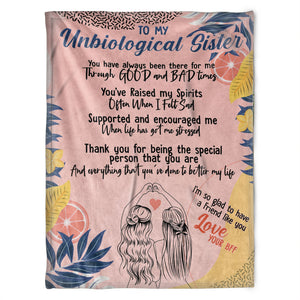 TO MY
Unbiological Sister
You have always been there for me
Through GOOD and BAD times
You've Raised my Spirits
Often When I Felt Sad
Supported and encouraged me
When life has got me stressed
Thank you for being the special
person that you are
And everything that you've done to better my life
I'm so glad to have
a friend like you
Love
YOUR BFF